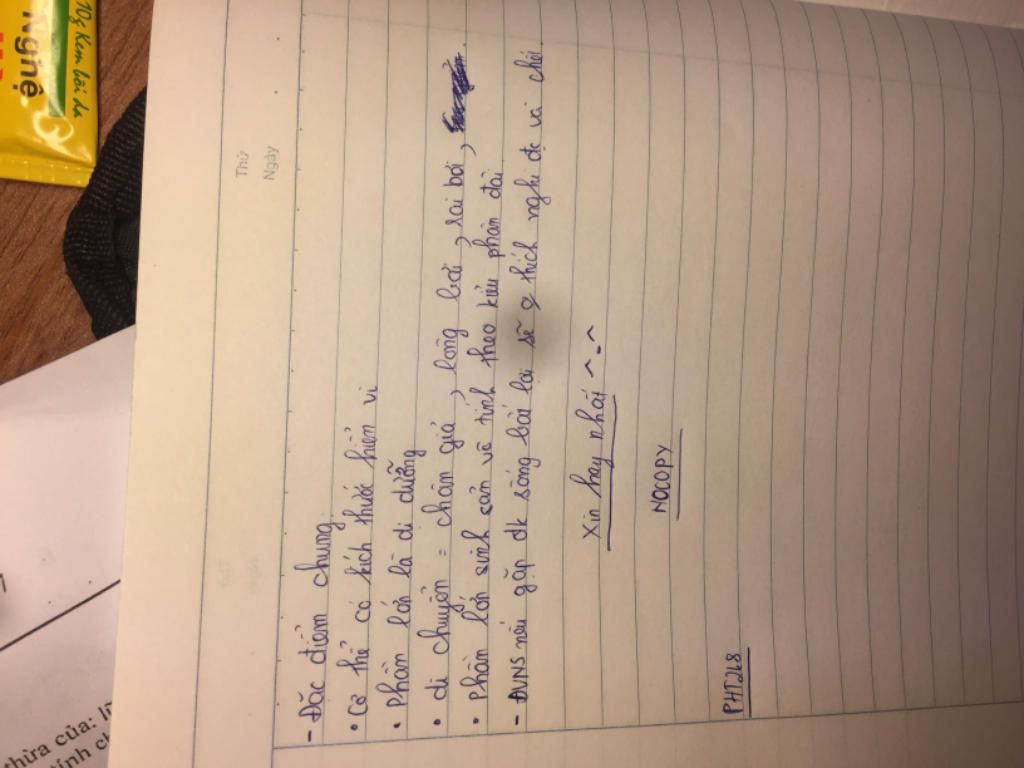 Thứ
Ngày
- Đăc điểm chung
• Cơ thể có kích thước hiển vi
• Phần lớn là dị dưỡng
• di chuyển = chân giả, lông bơi, roi bơi,
• Phần lớn sinh sản vô tính theo kiểu phân đôi
- ĐVNS nếu gặp đk sống bất lợi sẽ thích nghi
Xin hay nhất ^.^
NOCOPY
PHT268
10g Kem bôi da
Nghệ
thừa của:
tính